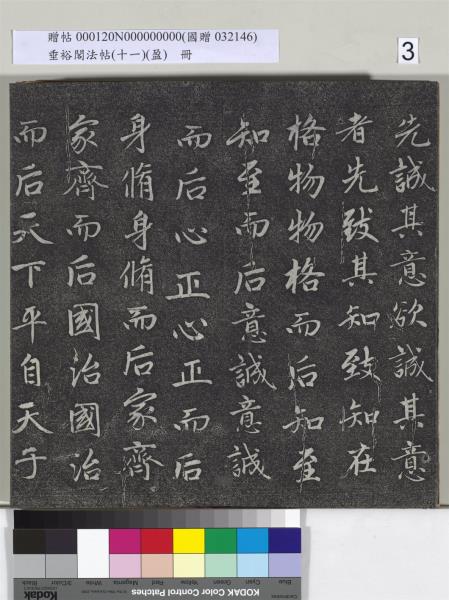 贈帖 000120N000000000(國贈 032146)
垂裕閣法帖(十一)(盈) 冊
3
先誠其意欲誠其意
者先致其知致知在
格物物格而后知至
知至而后意誠意誠
而后心正心正而后
身脩身脩而后家齊
家齊而后國治國治
而后天下平自天子
Blue
Cyan
Green
Yellow
Red
Magenta
White
3/Color
Black
KODAK Color Control Patches